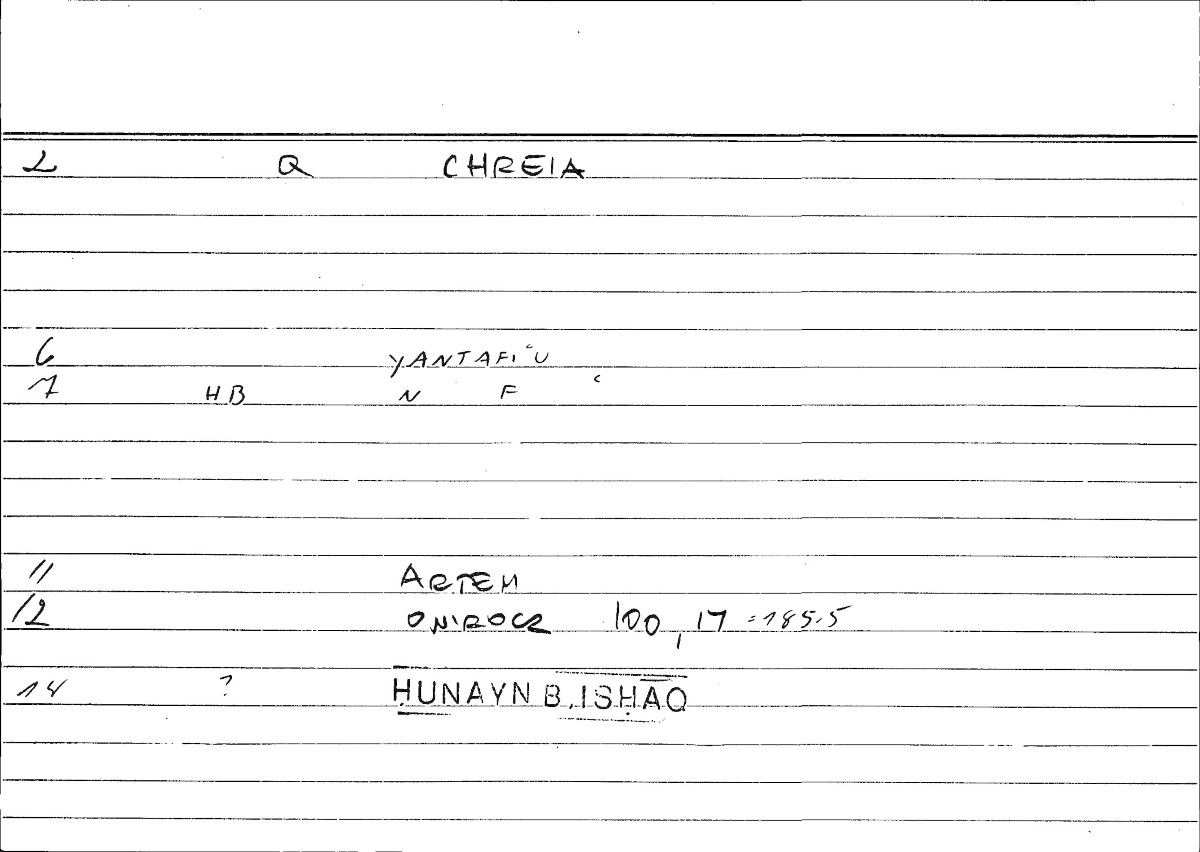 2 Q CHREIA
6 YANTAFIʿU
7 HB N F ʿ
11 ARTEM
12 ONIROCR 100,17 = 185.5
14 ? ḤUNAYN B. ISḤĀQ